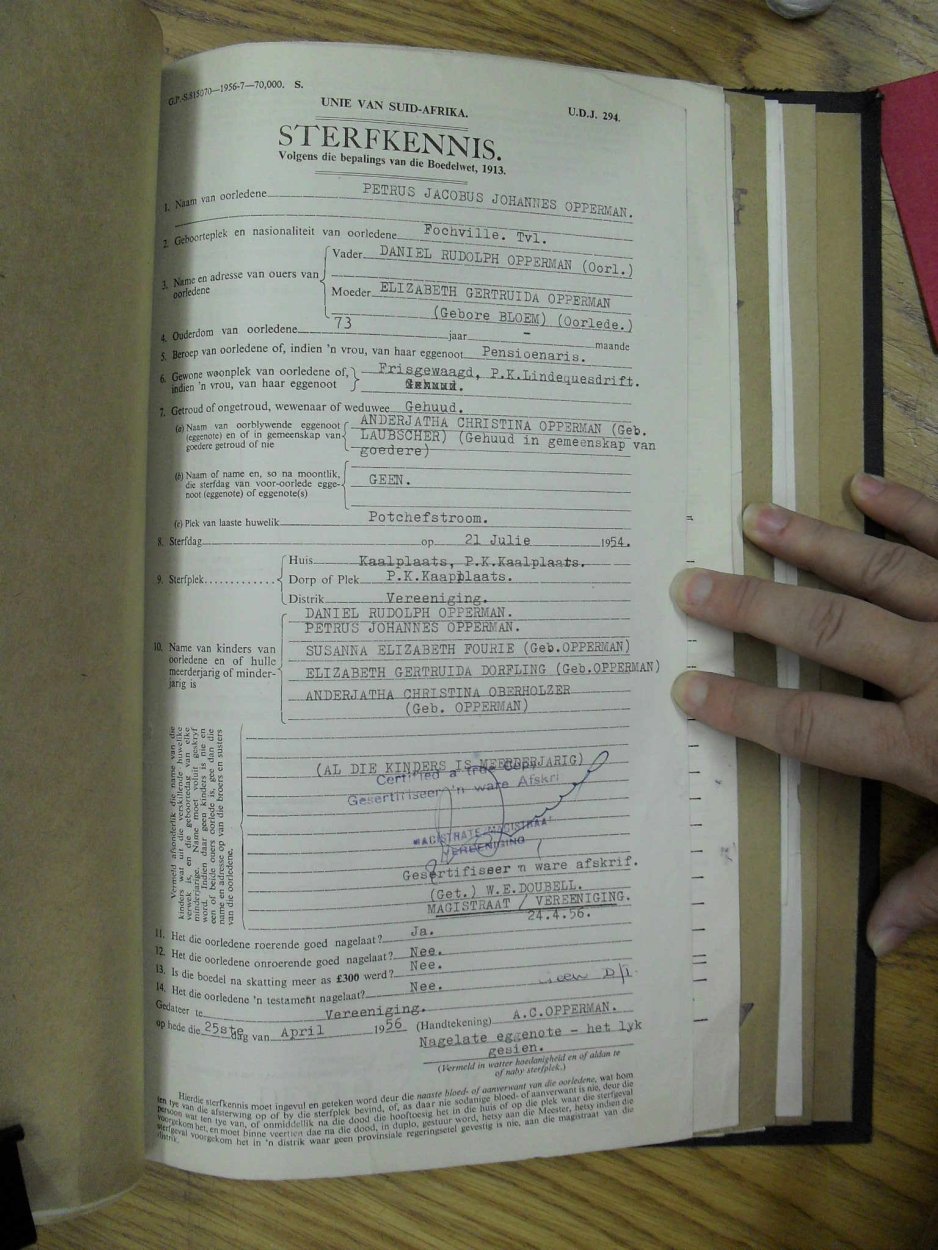 G.P.-S.815070—1956-7—70,000. S.
UNIE VAN SUID-AFRIKA.
U.D.J. 294.
STERFKENNIS.
Volgens die bepalings van die Boedelwet, 1913.
1. Naam van oorledene PETRUS JACOBUS JOHANNES OPPERMAN.
2. Geboorteplek en nasionaliteit van oorledene Fochville. Tvl.
3. Name en adresse van ouers van oorledene
Vader DANIEL RUDOLPH OPPERMAN (Oorl.)
Moeder ELIZABETH GERTRUIDA OPPERMAN
(Gebore BLOEM) (Oorlede.)
4. Ouderdom van oorledene 73 jaar - maande
5. Beroep van oorledene of, indien 'n vrou, van haar eggenoot Pensioenaris.
6. Gewone woonplek van oorledene of, Frisgewaagd, P.K.Lindequesdrift.
indien 'n vrou, van haar eggenoot
7. Getroud of ongetroud, wewenaar of weduwee Gehuud.
(a) Naam van oorblywende eggenoot ANDERJATHA CHRISTINA OPPERMAN (Geb.
(eggenote) en of in gemeenskap van LAUBSCHER) (Gehuud in gemeenskap van
goedere getroud of nie goedere)
(b) Naam of name en, so na moontlik,
die sterfdag van voor-oorlede egge- GEEN.
noot (eggenote) of eggenote(s)
(c) Plek van laaste huwelik Potchefstroom.
8. Sterfdag op 21 Julie 1954.
9. Sterfplek
Huis Kaalplaats, P.K.Kaalplaats.
Dorp of Plek P.K.Kaapplaats.
Distrik Vereeniging.
10. Name van kinders van
oorledene en of hulle
meerderjarig of minder-
jarig is
DANIEL RUDOLPH OPPERMAN.
PETRUS JOHANNES OPPERMAN.
SUSANNA ELIZABETH FOURIE (Geb.OPPERMAN)
ELIZABETH GERTRUIDA DORFLING (Geb.OPPERMAN)
ANDERJATHA CHRISTINA OBERHOLZER
(Geb. OPPERMAN)
Vermeld afsonderlik die name van die
kinders wat uit die verskillende huwelike
verwek is, en die geboortedag van elke
minderjarige. Name moet voluit geskryf
word. Indien daar geen kinders is nie en
een of beide ouers oorlede is, gee dan die
name en adresse op van die broers en susters
van die oorledene.
(AL DIE KINDERS IS MEERDERJARIG)
Certified a true Copy
Gesertifiseer 'n ware Afskri
MAGISTRATE/MAGISTRAAT
VEREENIGING
Gesertifiseer 'n ware afskrif.
(Get.) W.E.DOUBELL.
MAGISTRAAT / VEREENIGING.
24.4.56.
11. Het die oorledene roerende goed nagelaat? Ja.
12. Het die oorledene onroerende goed nagelaat? Nee.
13. Is die boedel na skatting meer as £300 werd? Nee.
14. Het die oorledene 'n testament nagelaat? Nee.
Gedateer te Vereeniging.
op hede die 25ste dag van April 1956 (Handtekening) A.C.OPPERMAN.
Nagelate eggenote - het lyk
gesien.
(Vermeld in watter hoedanigheid en of aldan te
of naby sterfplek.)
Hierdie sterfkennis moet ingevul en geteken word deur die naaste bloed- of aanverwant van die oorledene, wat hom
ten tye van die afsterwing op of by die sterfplek bevind, of, as daar nie sodanige bloed- of aanverwant is nie, deur die
persoon wat ten tye van, of onmiddellik na die dood die hooftoesig het in die huis of op die plek waar die sterfgeval
voorgekom het, en moet binne veertien dae na die dood, in duplo, gestuur word, hetsy aan die Meester, hetsy indien die
sterfgeval voorgekom het in 'n distrik waar geen provinsiale regeringsetel gevestig is nie, aan die magistraat van die
distrik.